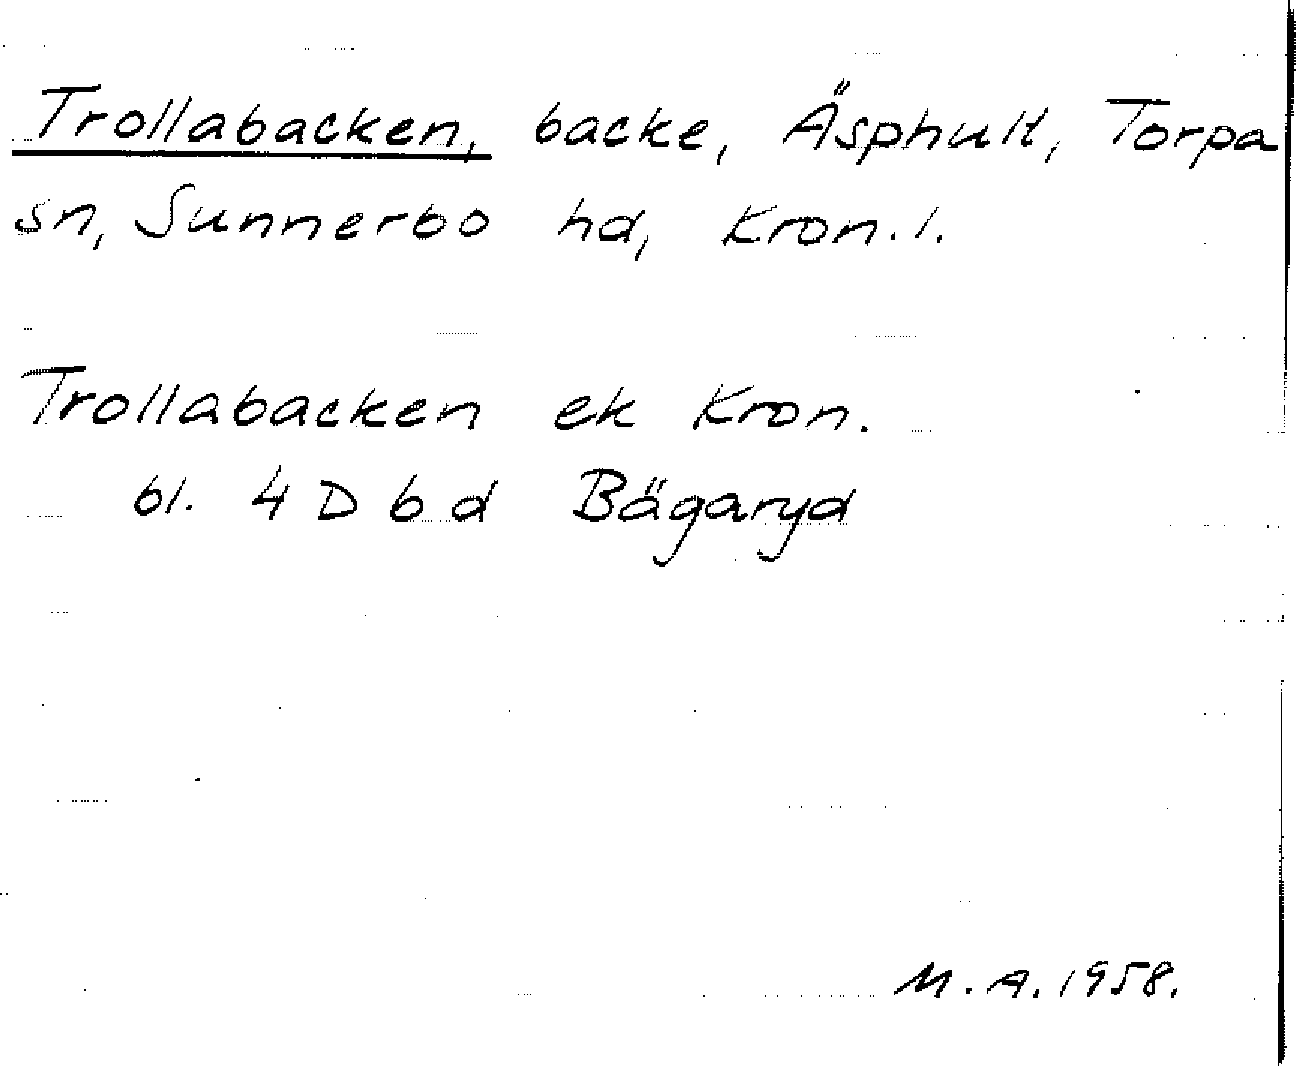 Trollabacken, backe, Äsphult, Torpa
sn, Sunnerbo hd, Kron. l.
Trollabacken ek Kron.
bl. 4 D b d Bägaryd
M. A. 1958.